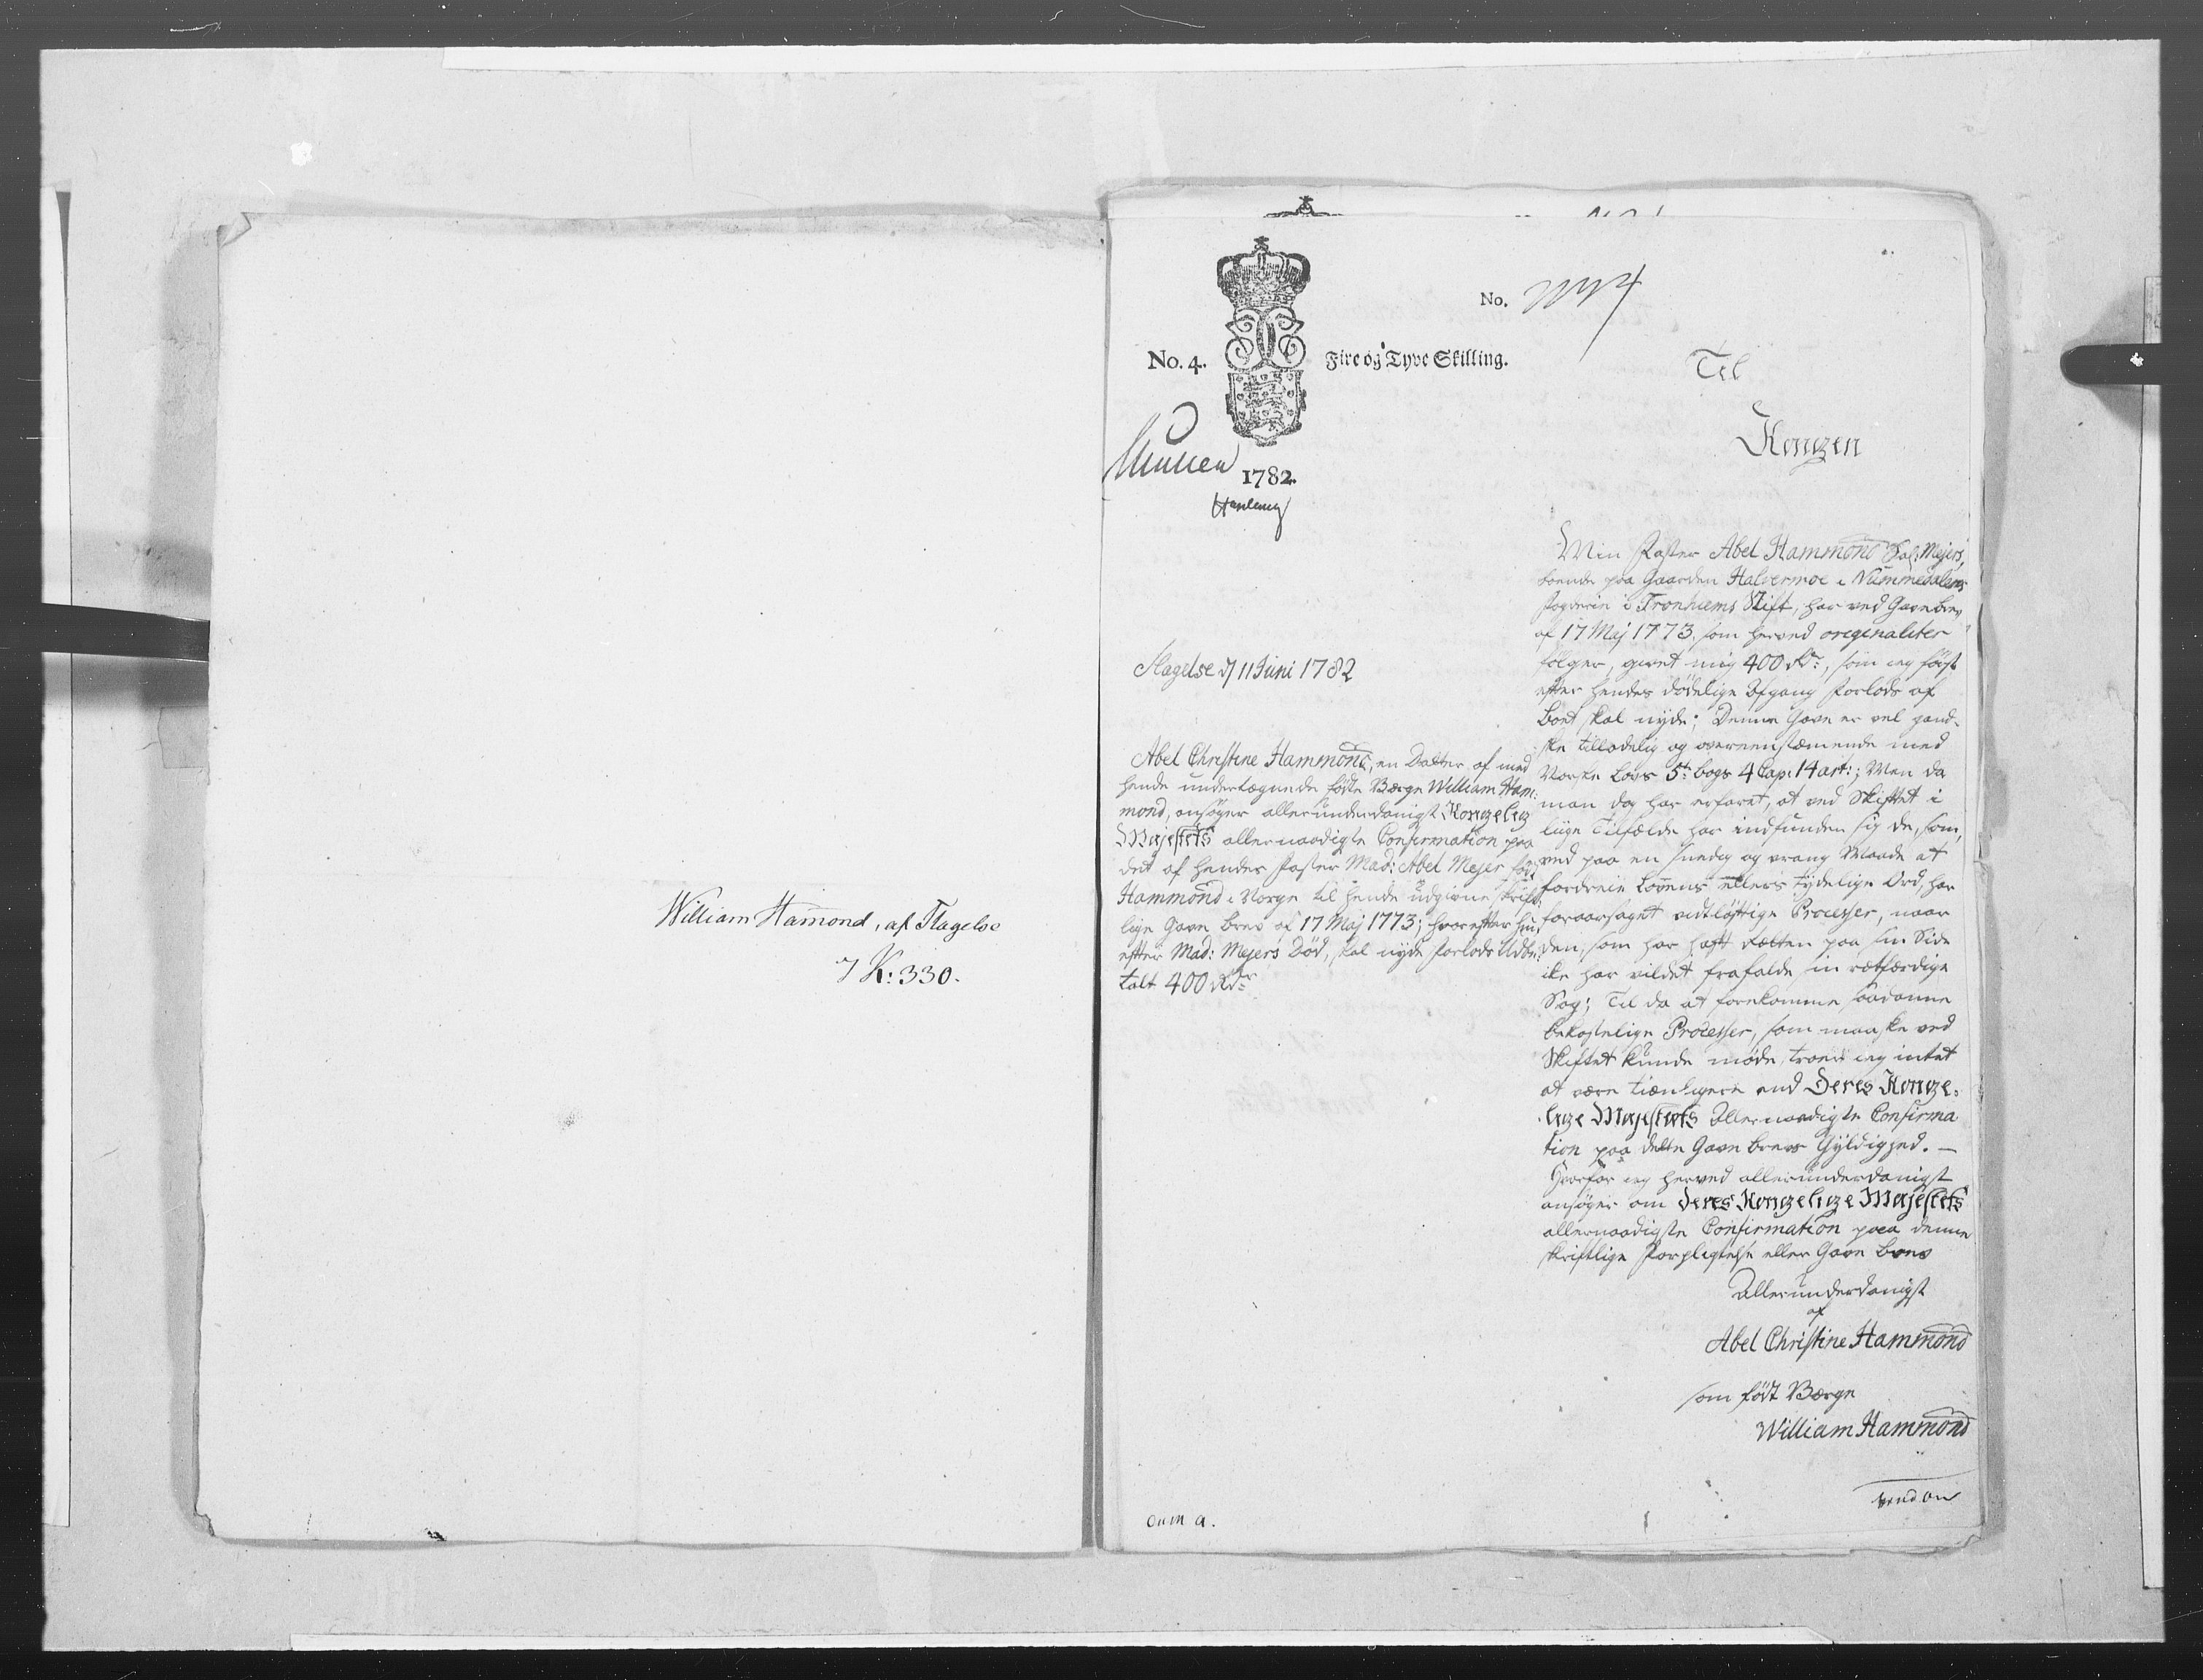 William Hamond, af Slagelse
7 K: 330.
No.
No. 4.
Fire og Tyve Skilling.
1782.
Til
Kongen
Slagelse d 11 Juni 1782
Abel Christine Hammond, en Datter af med
hende undertegnede fødte Værge William Ham:
mond, ansøger allerunderdanigst Kongelig
Majestets allernaadigste Confirmation paa
det af hendes Faster Mad: Abel Mejer, født
Hammond i Norge til hende udgivne skrift
lige Gave Brev af 17 Maj 1773; hvorefter hun
efter Mad: Mejers Død, skal nyde forlods udbe:
talt 400 Rdr
Min Faster Abel Hammond Sal: Mejers,
boende paa Gaarden Halvermoe i Nummedalens
Fogderie i Tronhiems Stift, har ved Gavebrev
af 17 Maj 1773. som herved originaliter
følger, givet mig 400 Rdr:, som ieg først
efter hendes dødelige Afgang forlods af
Boet skal nyde; Denne Gave er vel gand-
ske tilladelig og overeenstemmende med
Norske Lovs 5te Bogs 4 Cap: 14 art:; Men da
man dog har erfaret, at ved Skiftet i
liige Tilfælde har indfunden sig de, som,
ved paa en snedig og vrang Maade at
fordreie Lovens ellers tydelige Ord, har
foraarsaget vidtløftige Processer, naar
den, som har haft Retten paa sin Side
ike har vildet frafalde sin retfærdige
Sag; Til da at forekomme saadanne
bekostelige Processer, som maaske ved
Skiftet kunde møde, troer ieg intet
at være tienligere end Deres Konge-
lige Majestets Allernaadigste Confirma
tion paa dette Gave Brevs Gyldighed. -
Hvorfor ieg herved allerunderdanigst
ansøger om Deres Kongelige Majestets
allernaadigste Confirmation paa denne
skriftlige Forpligtelse eller Gave Brev
Allerunderdanigst
af
Abel Christine Hammond
som født Værge
William Hammond